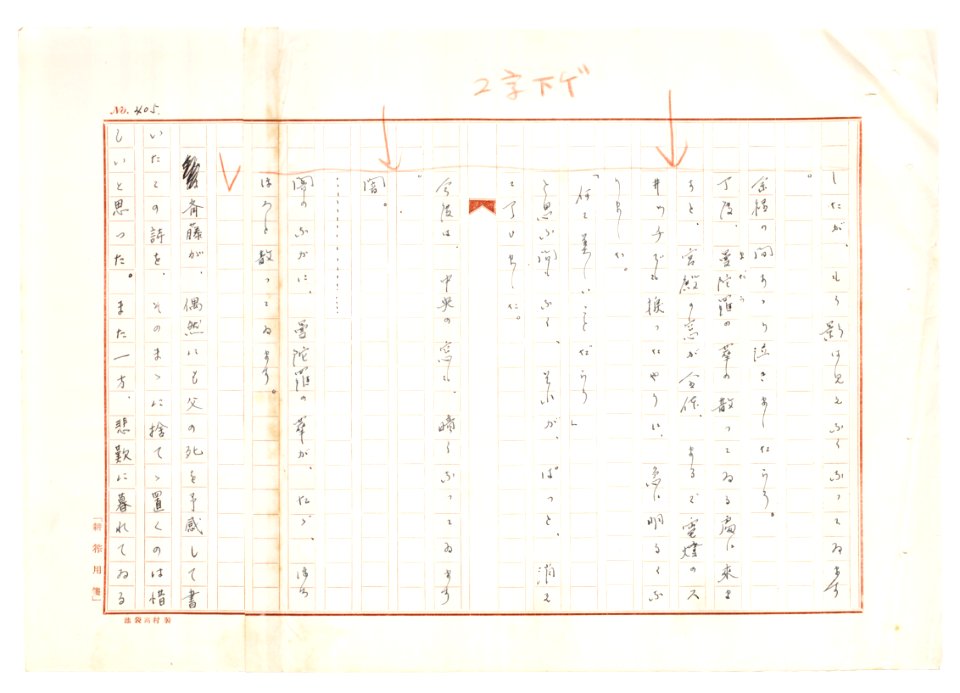 2字下ゲ
No. 405.
したが、もう影は見えなくなつてゐます
。
余程の間あつしは泣きましたらう。
丁度、曼陀羅の華の散つてゐる処に来ま
まだら
すと、宮殿の窓が全体、まるで電燈のス
井ツチでも捩つたやうに、急に明るくな
りました。
「何て美しいことだらう」
と思ふ間もなく、それが、ぱつと、消え
て了ひました。
今度は、中央の窓も、暗くなつてゐます
。
闇。
闇のなかに、曼陀羅の華が、ただ、ほろ
ほろと散つてゐます。
斉藤が、偶然にも父の死を予感して書
いたこの詩を、そのまゝに捨てゝ置くのは惜
しいと思つた。また一方、悲歎に暮れてゐる